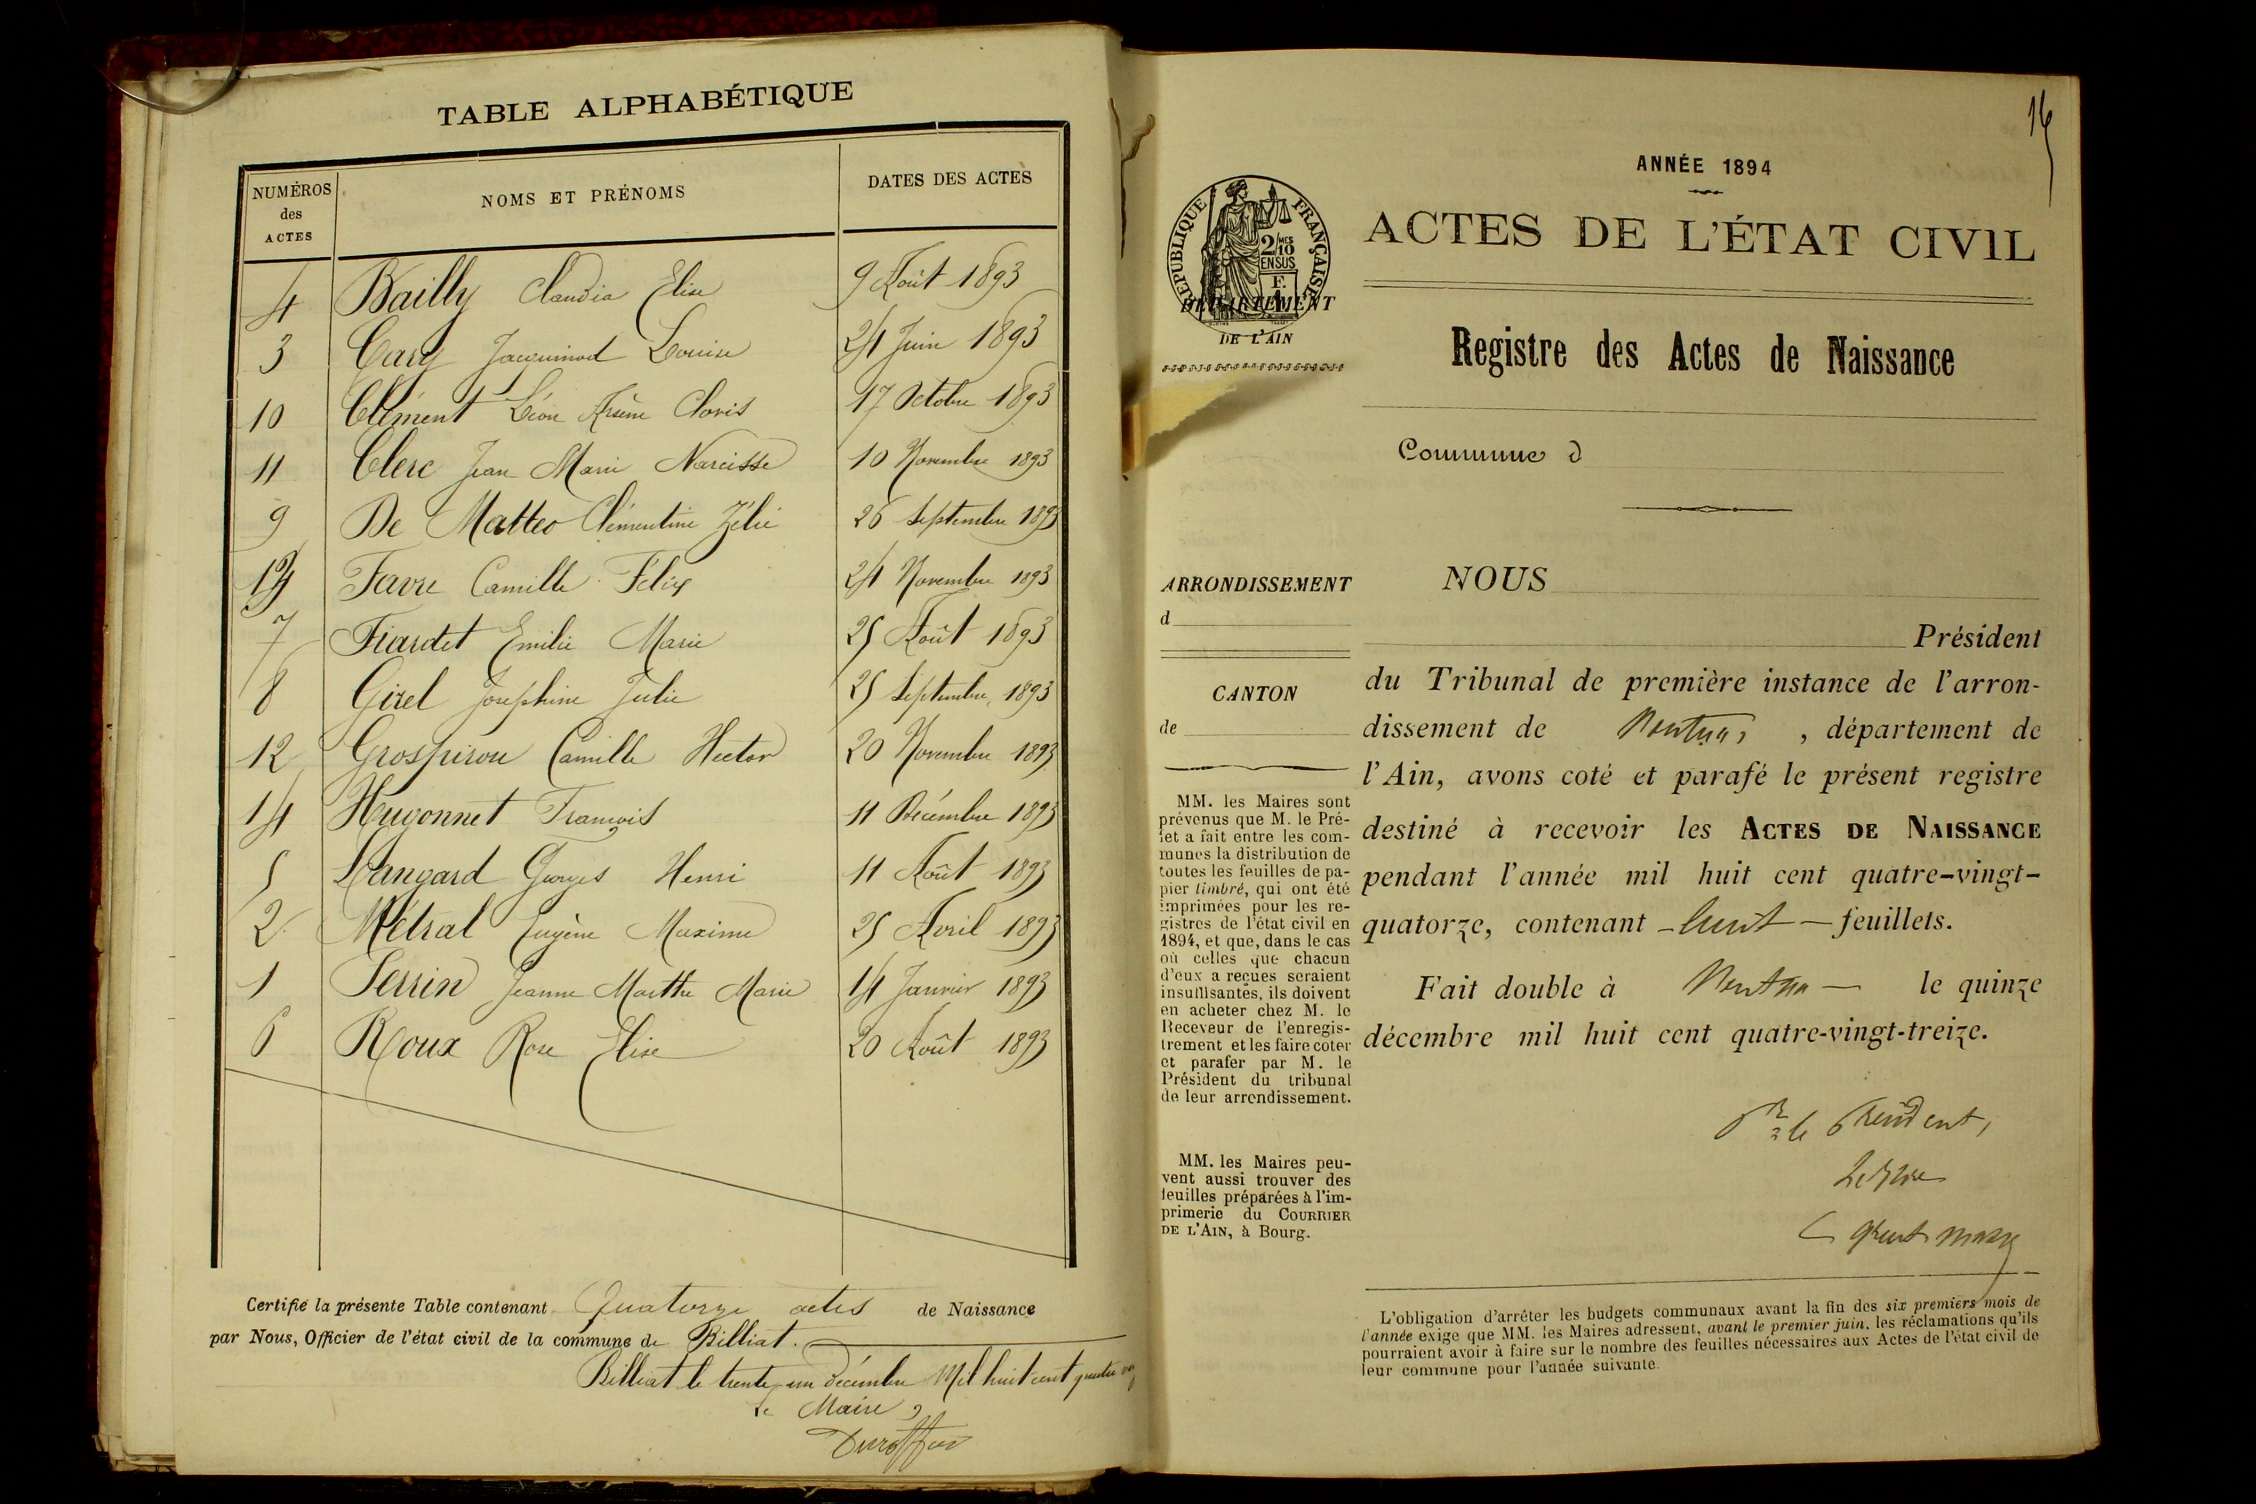 TABLE ALPHABÉTIQUE
NUMÉROS des ACTES NOMS ET PRÉNOMS DATES DES ACTES
4 Bailly Claudia Elise 9 Août 1893
3 Cary Jacquinod Louise 24 Juin 1893
10 Clément Léon Arsène Clovis 17 Octobre 1893
11 Clerc Jean Marie Narcisse 10 Novembre 1893
9 De Matteo Clémentine Zélie 26 Septembre 1893
13 Favre Camille Félix 24 Novembre 1893
7 Fiardet Emilie Marie 25 Août 1893
8 Girel Joséphine Julie 25 Septembre 1893
12 Grospiron Camille Hector 20 Novembre 1893
14 Hugonnet François 11 Décembre 1893
5 Mangard Georges Henri 11 Août 1893
2 Métral Eugène Maxime 25 Avril 1893
1 Perrin Jeanne Marthe Marie 14 Janvier 1893
6 Roux Rose Elise 20 Août 1893
Certifié la présente Table contenant Quatorze actes de Naissance
par Nous, Officier de l'état civil de la commune de Billiat.
Billiat le trente un décembre Mil huit cent quatre
Le Maire,
14
ANNÉE 1894
ACTES DE L'ÉTAT CIVIL
RÉPUBLIQUE FRANÇAISE
2/10 MES
EN SUS
F.
1
DÉPARTEMENT
DE L'AIN
Registre des Actes de Naissance
Commune d
ARRONDISSEMENT
d
CANTON
de
MM. les Maires sont
prévenus que M. le Pré-
fet a fait entre les com-
munes la distribution de
toutes les feuilles de pa-
pier timbré, qui ont été
imprimées pour les re-
gistres de l'état civil en
1894, et que, dans le cas
où celles que chacun
d'eux a reçues seraient
insuffisantes, ils doivent
en acheter chez M. le
Receveur de l'enregis-
trement et les faire coter
et parafer par M. le
Président du tribunal
de leur arrondissement.
MM. les Maires peu-
vent aussi trouver des
feuilles préparées à l'im-
primerie du COURRIER
DE L'AIN, à Bourg.
NOUS
Président
du Tribunal de première instance de l'arron-
dissement de Nantua, département de
l'Ain, avons coté et parafé le présent registre
destiné à recevoir les ACTES DE NAISSANCE
pendant l'année mil huit cent quatre-vingt-
quatorze, contenant - huit - feuillets.
Fait double à Nantua — le quinze
décembre mil huit cent quatre-vingt-treize.
Pr le Président,
Le Juge
L'obligation d'arrêter les budgets communaux avant la fin des six premiers mois de
l'année exige que MM. les Maires adressent, avant le premier juin, les réclamations qu'ils
pourraient avoir à faire sur le nombre des feuilles nécessaires aux Actes de l'état civil de
leur commune pour l'année suivante.